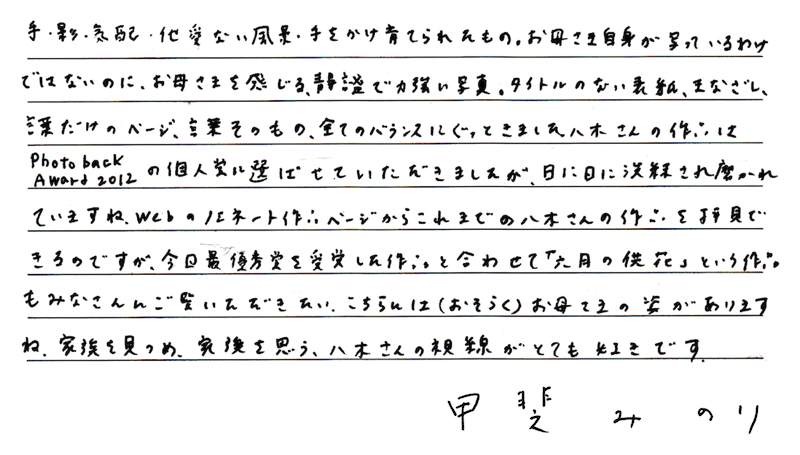 手・影・気配・他愛ない風景・手をかけ育てられたもの。お母さま自身が写っているわけ
ではないのに、お母さまを感じる、静謐で力強い写真。タイトルのない表紙、まなざし、
言葉だけのページ、言葉そのもの、全てのバランスにぐっときました八木さんの作品は
Photoback Award 2012 の個人賞に選ばせていただきましたが、日に日に洗練され磨かれ
ていますね。Webのノミネート作品ページからこれまでの八木さんの作品を拝見で
きるのですが、今回最優秀賞を受賞した作品と合わせて「六月の供花」という作品
もみなさんにご覧いただきたい。こちらには(おそらく)お母さまの姿があります
ね。家族を見つめ、家族を思う、八木さんの視線がとても好きです。
甲斐 みのり